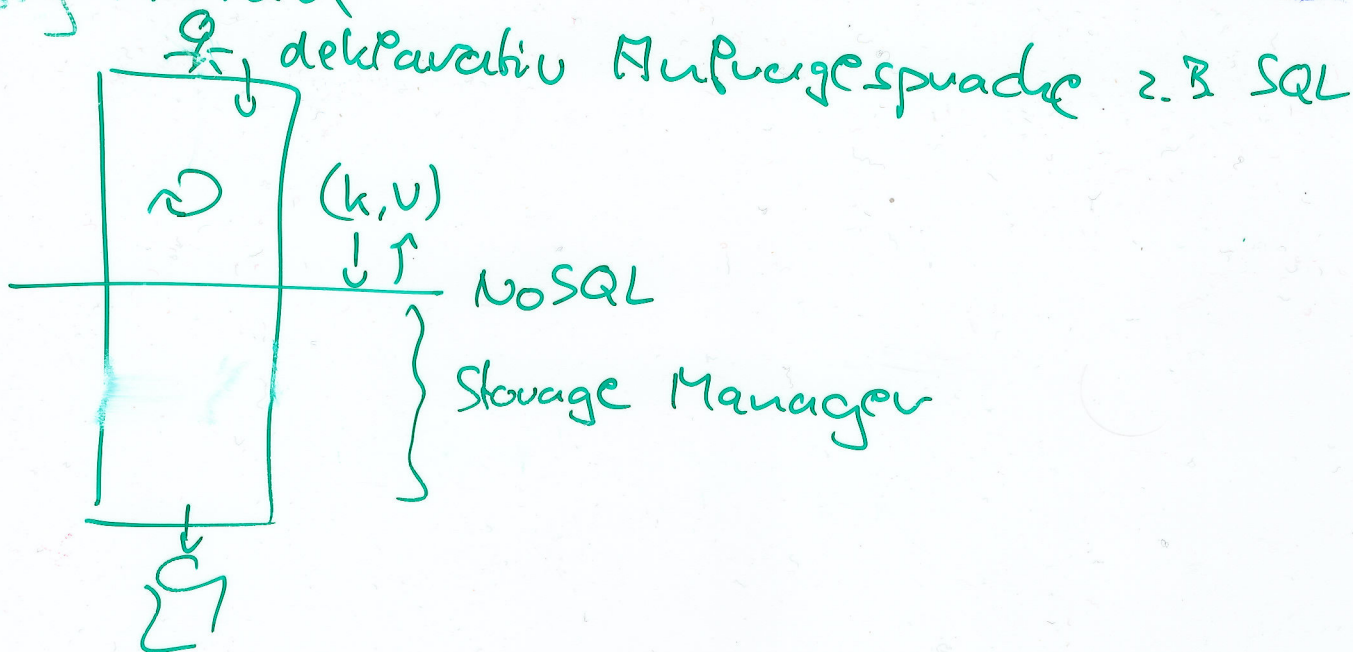 deklarativ Anfragesprache z.B SQL
(k,v)
NoSQL
Storage Manager